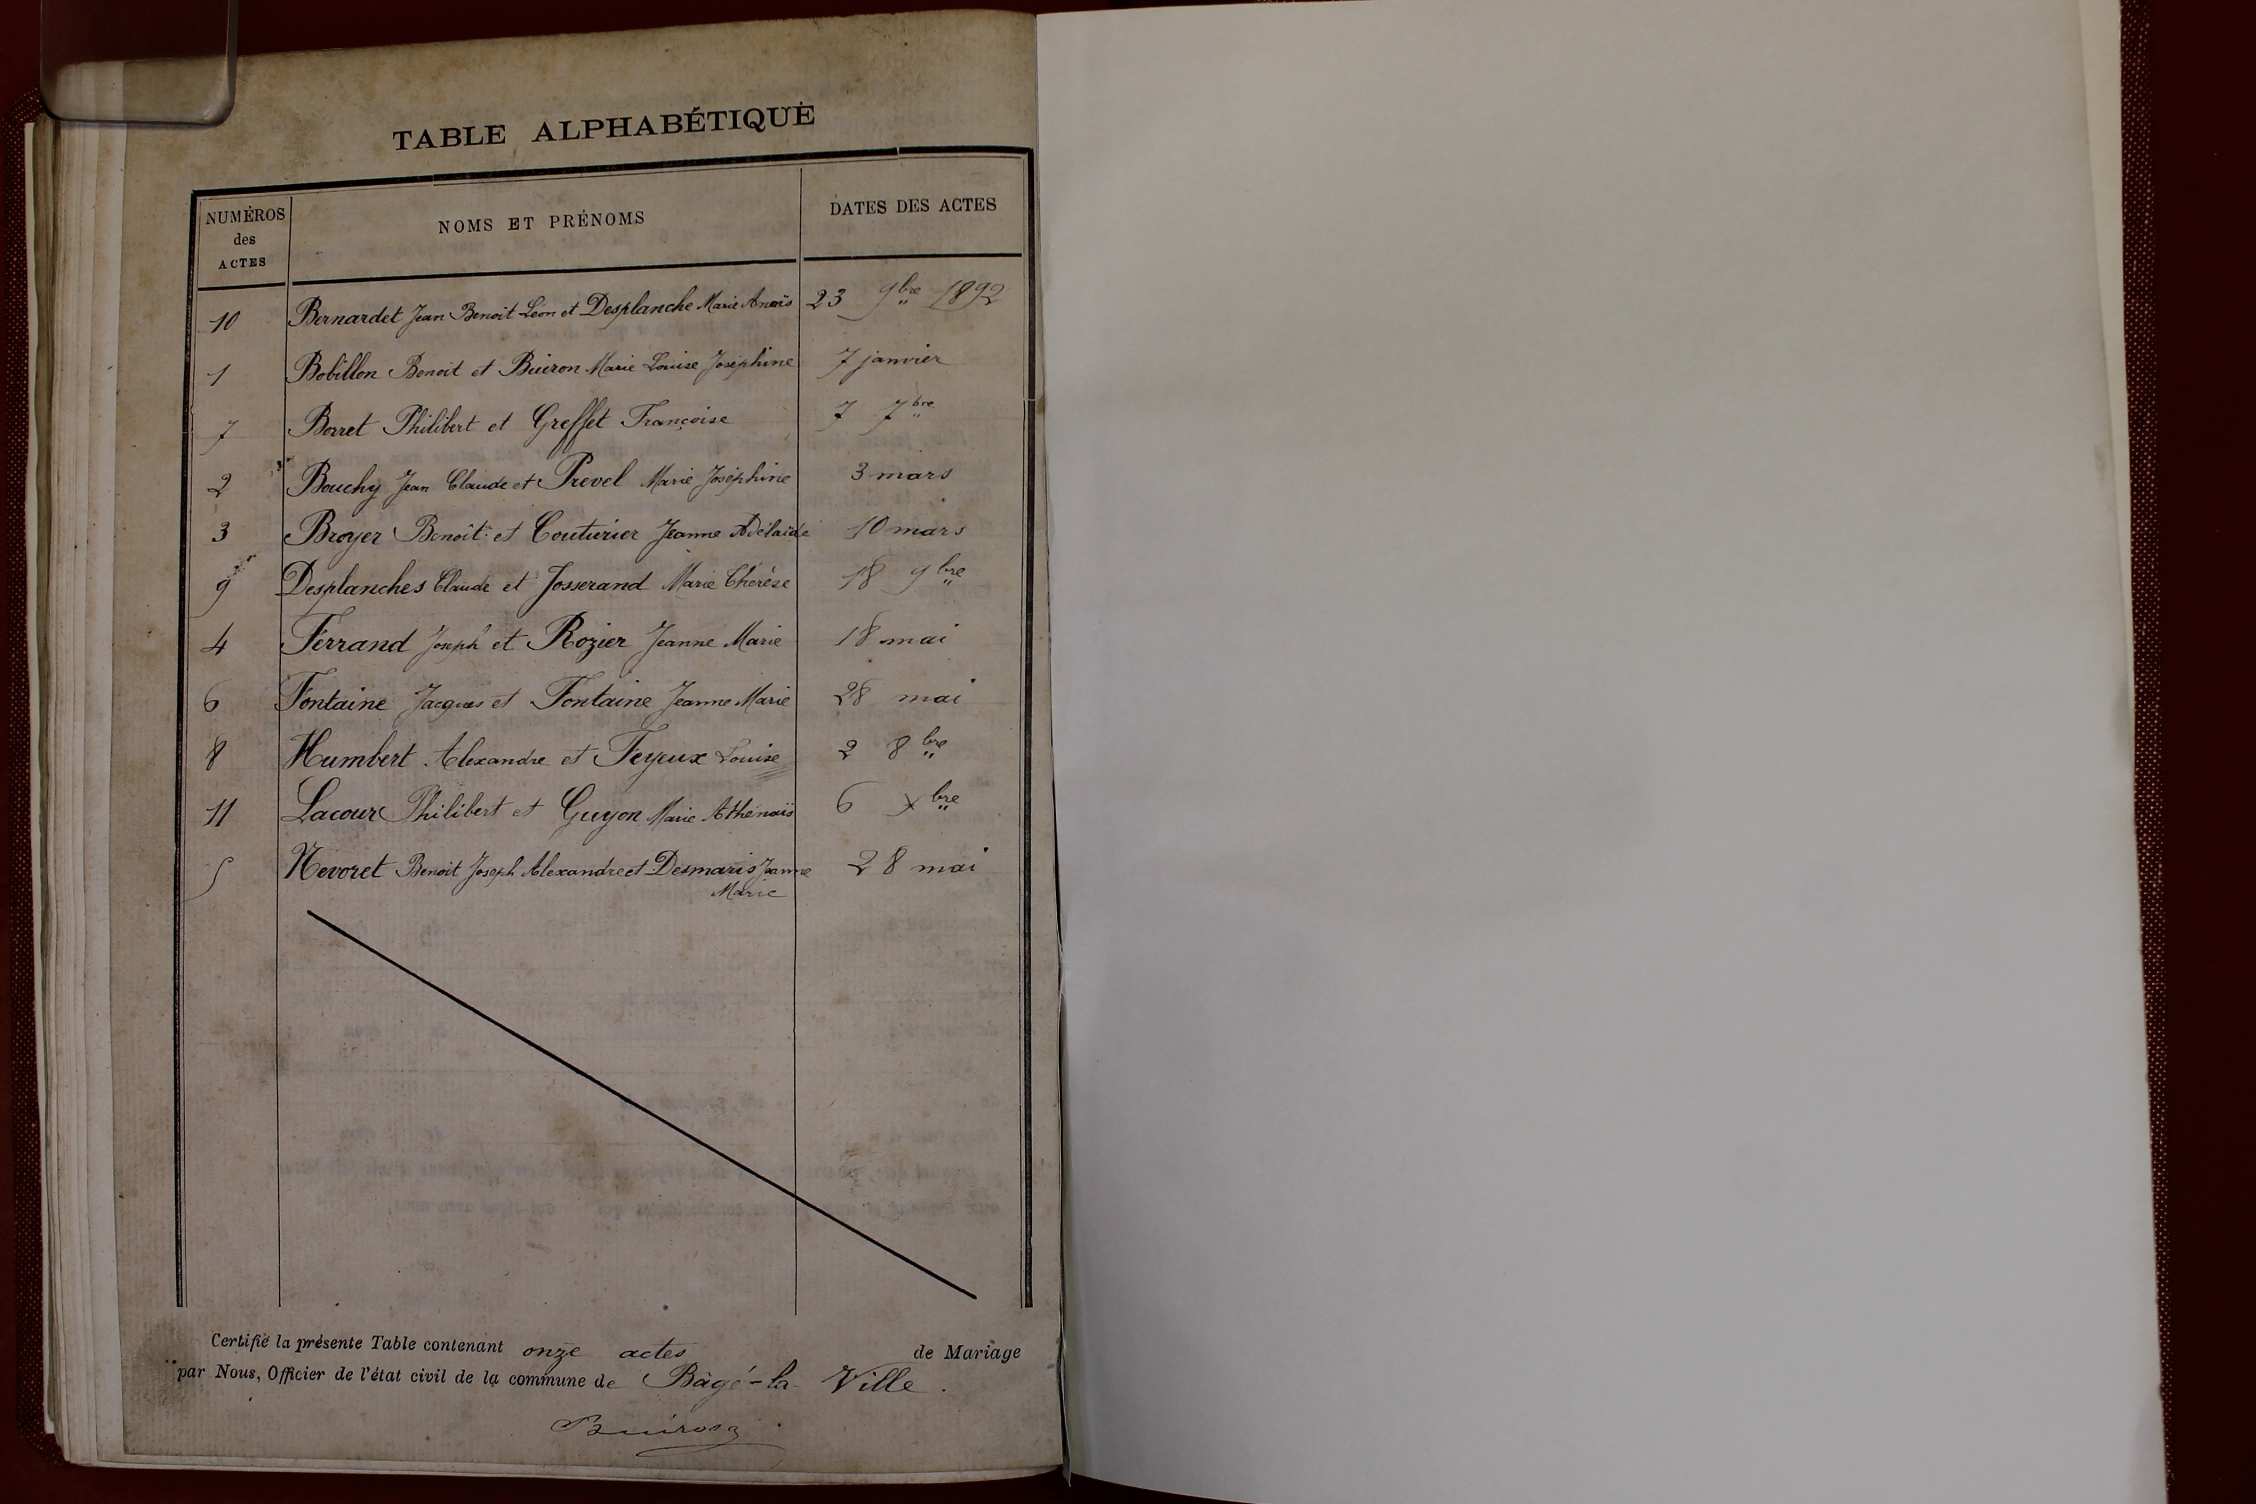 TABLE ALPHABÉTIQUE
NUMÉROS des ACTES NOMS ET PRÉNOMS DATES DES ACTES
10 Bernardet Jean Benoit Léon et Desplanche Marie Anaïs 23 9bre 1892
1 Bobillon Benoit et Buiron Marie Louise Joséphine 7 janvier
7 Borret Philibert et Greffet Françoise 7 7bre
2 Bouchy Jean Claude et Prevel Marie Joséphine 3 mars
3 Broyer Benoît et Couturier Jeanne Adélaïde 10 mars
9 Desplanches Claude et Josserand Marie Thérèse 18 9bre
4 Ferrand Joseph et Rozier Jeanne Marie 18 mai
6 Fontaine Jacques et Fontaine Jeanne Marie 28 mai
8 Humbert Alexandre et Feyeux Louise 2 8bre
11 Lacour Philibert et Guyon Marie Athénaïs 6 xbre
5 Nevoret Benoit Joseph Alexandre et Desmaris Jeanne 28 mai
Marie
Certifié la présente Table contenant onze actes de Mariage
par Nous, Officier de l'état civil de la commune de Bâgé-la-Ville.
Buiron